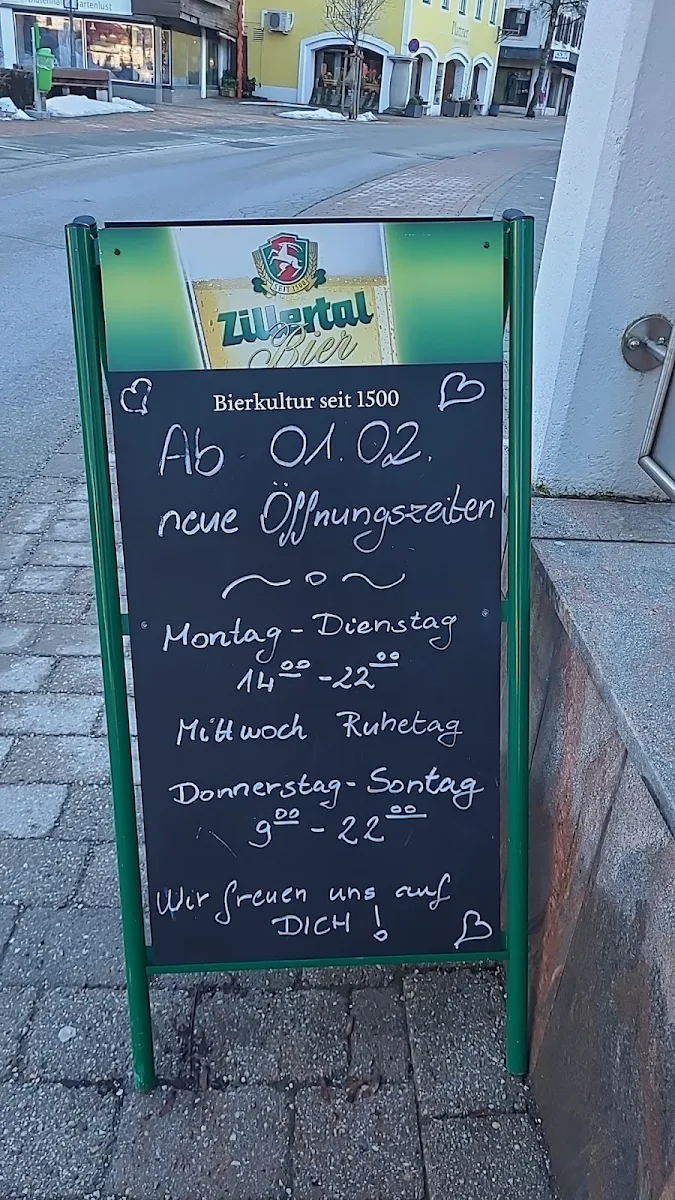 SEIT 1500
Zillertal
Bier
Bierkultur seit 1500
Ab 01.02.
neue Öffnungszeiten
Montag - Dienstag
14⁰⁰ - 22⁰⁰
Mittwoch Ruhetag
Donnerstag - Sontag
9⁰⁰ - 22⁰⁰
Wir freuen uns auf
DICH!